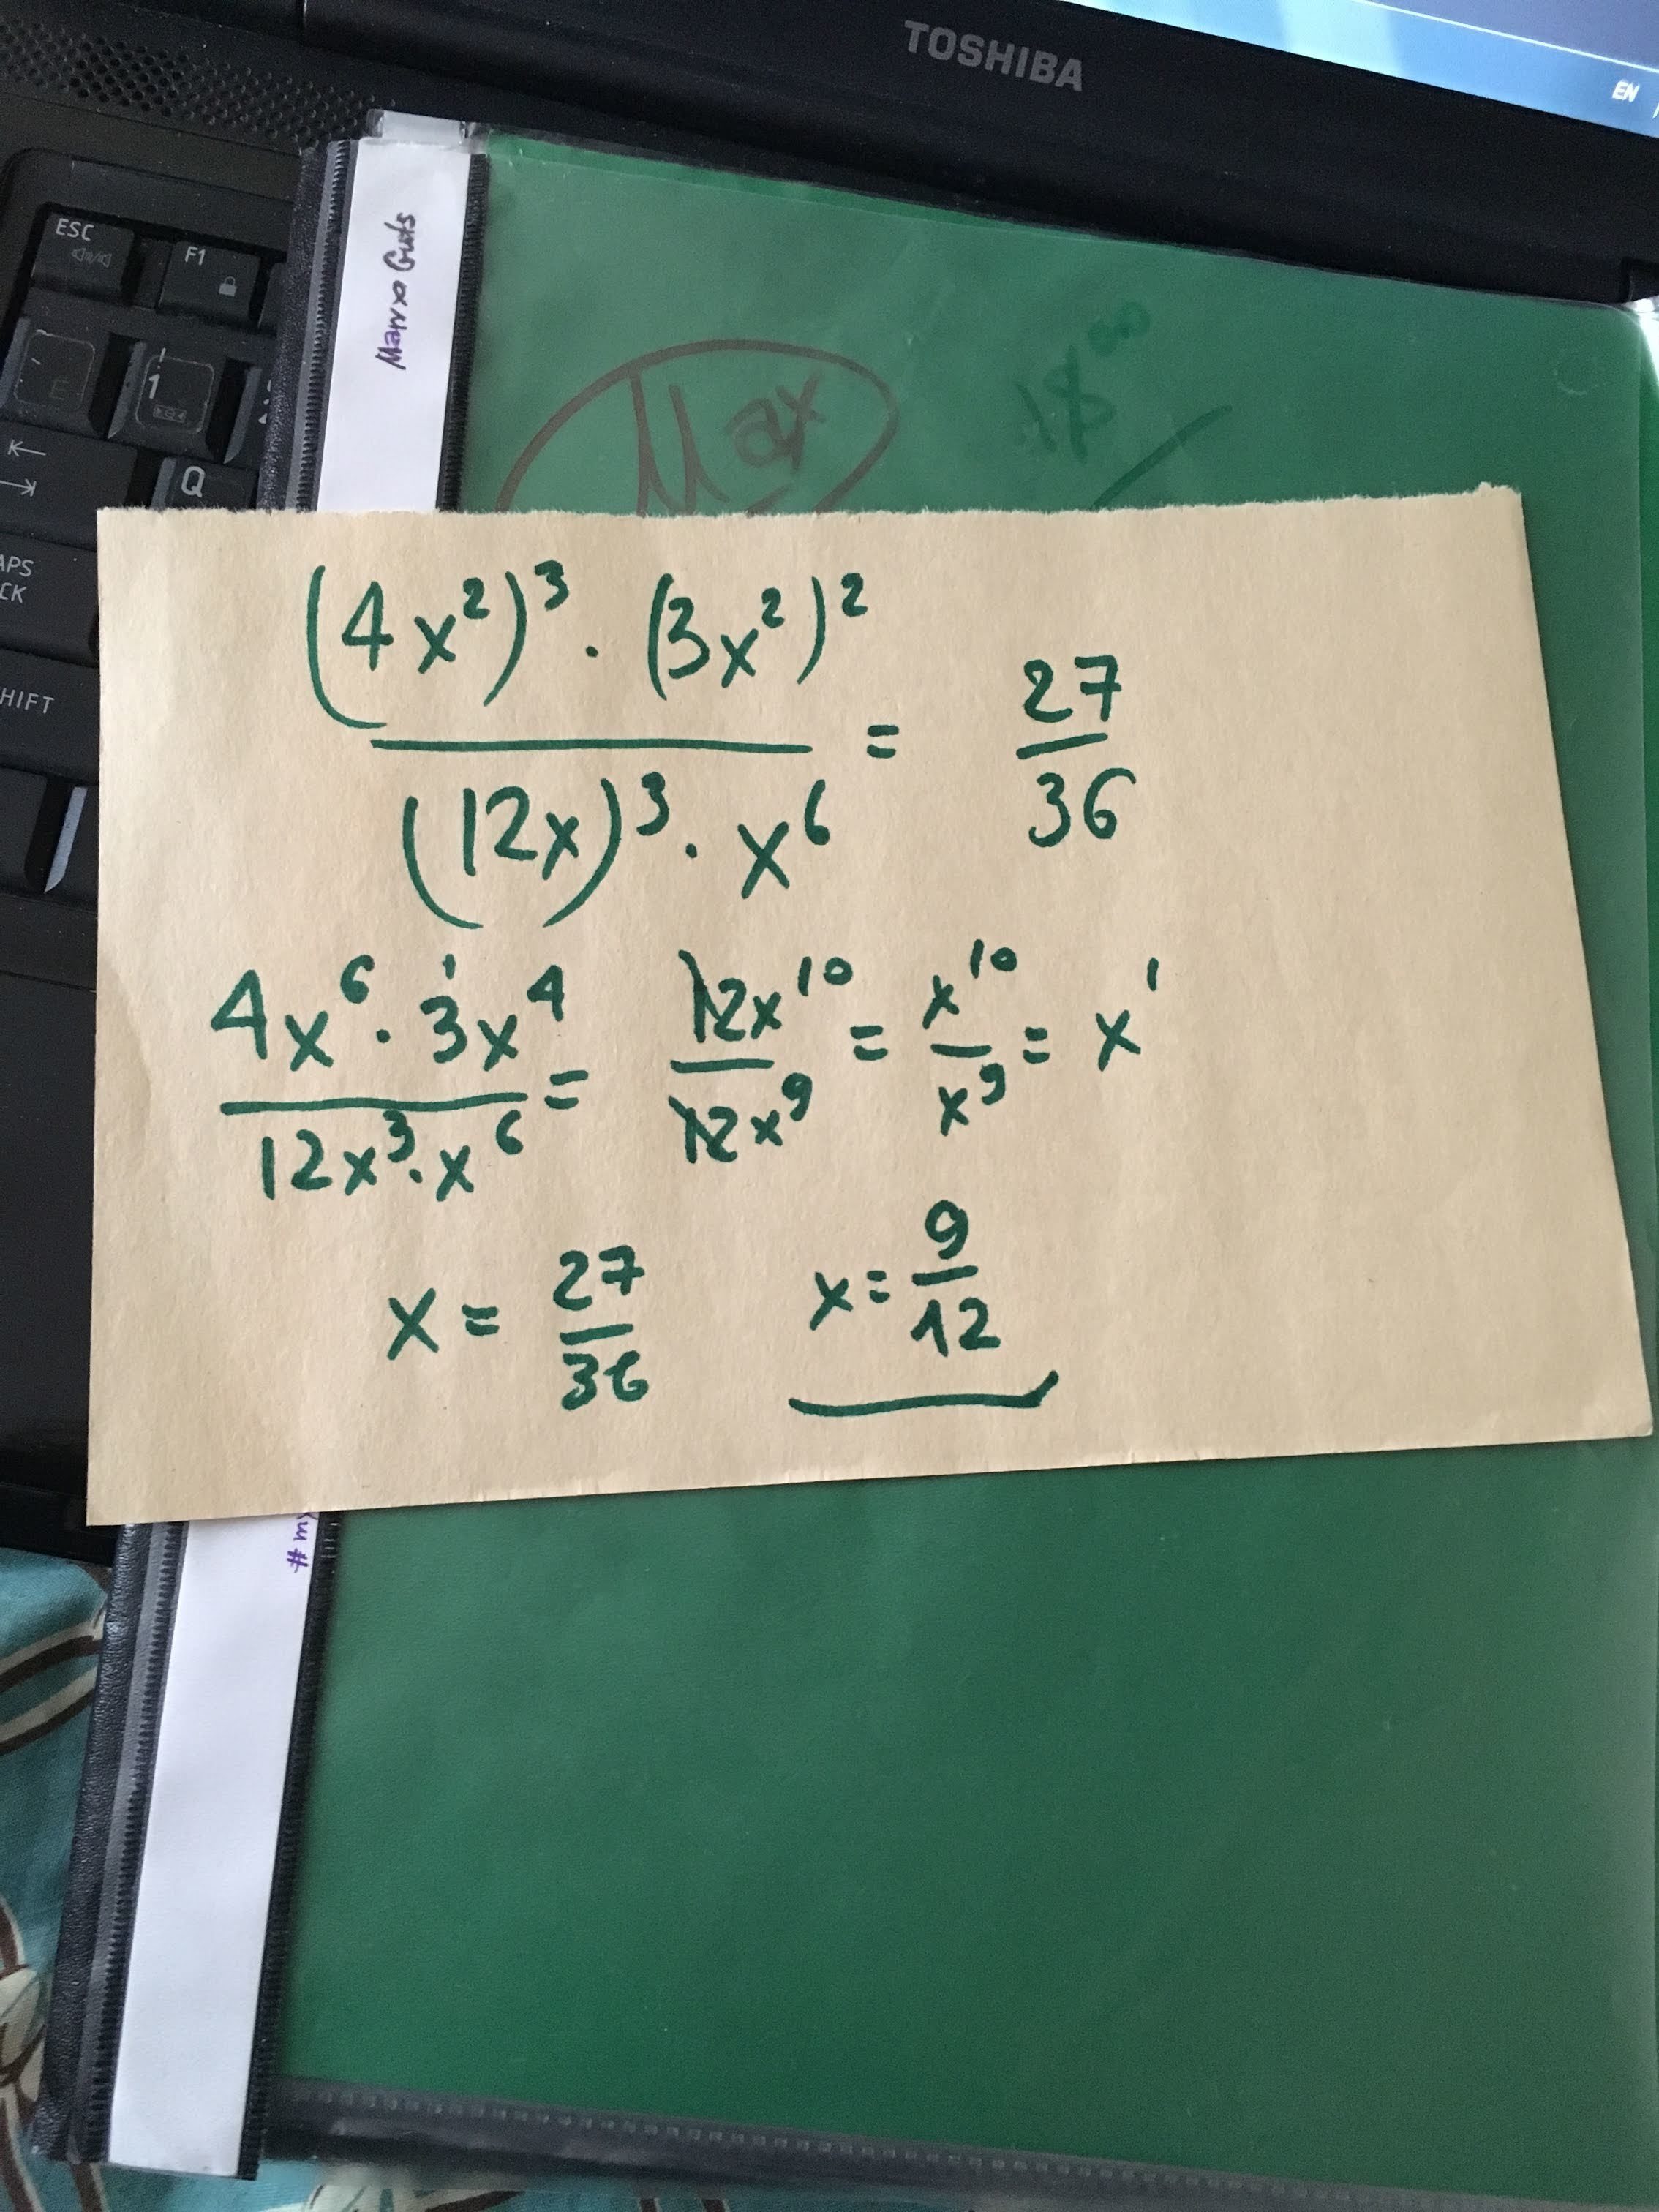 TOSHIBA
EN
ESC
F1
1
Q
APS
CK
HIFT
Max
18⁰⁰
(4x²)³ · (3x²)² / (12x)³ · x⁶ = 27/36
4x⁶ · 3x⁴ / 12x³ · x⁶ = 12x¹⁰ / 12x⁹ = x¹⁰ / x⁹ = x¹
x = 27/36 x = 9/12